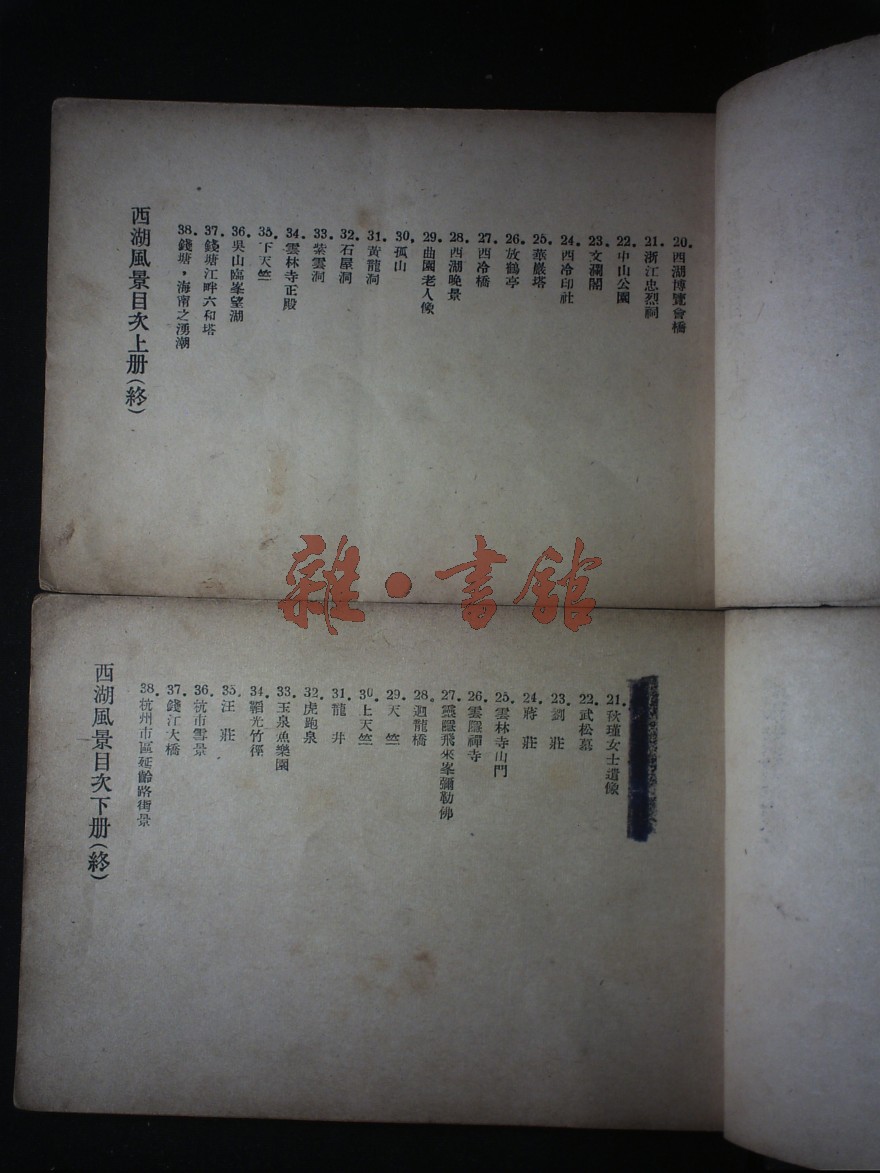 20.西湖博覽會橋
21.浙江忠烈祠
22.中山公園
23.文瀾閣
24.西冷印社
25.華嚴塔
26.放鶴亭
27.西冷橋
28.西湖晚景
29.曲園老人像
30.孤山
31.黃龍洞
32.石屋洞
33.紫雲洞
34.雲林寺正殿
35.下天竺
36.吳山臨峯望湖
37.錢塘江畔六和塔
38.錢塘，海甯之湧潮
西湖風景目次上册(終)
雜·書館
21.秋瑾女士遺像
22.武松墓
23.劉莊
24.蔣莊
25.雲林寺山門
26.雲隱禪寺
27.靈隱飛來峯彌勒佛
28.迴龍橋
29.天竺
30.上天竺
31.龍井
32.虎跑泉
33.玉泉魚樂園
34.韜光竹徑
35.汪莊
36.杭市雪景
37.錢江大橋
38.杭州市區延齡路街景
西湖風景目次下册(終)